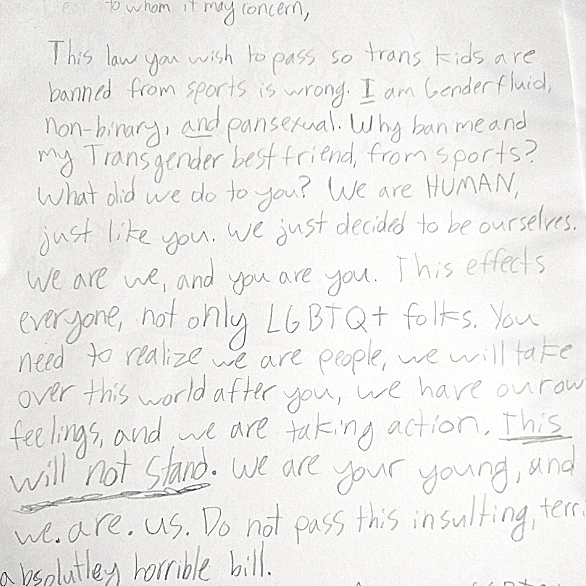 Dear to whom it may concern,
This law you wish to pass so trans kids are
banned from sports is wrong. I am Genderfluid,
non-binary, and pansexual. Why ban me and
my Transgender best friend, from sports?
What did we do to you? We are HUMAN,
just like you. We just decided to be ourselves.
We are we, and you are you. This effects
everyone, not only LGBTQ+ folks. You
need to realize we are people, we will take
over this world after you, we have our own
feelings, and we are taking action. This
will not stand. We are your young, and
we. are. us. Do not pass this insulting, terri
absolutley horrible bill.